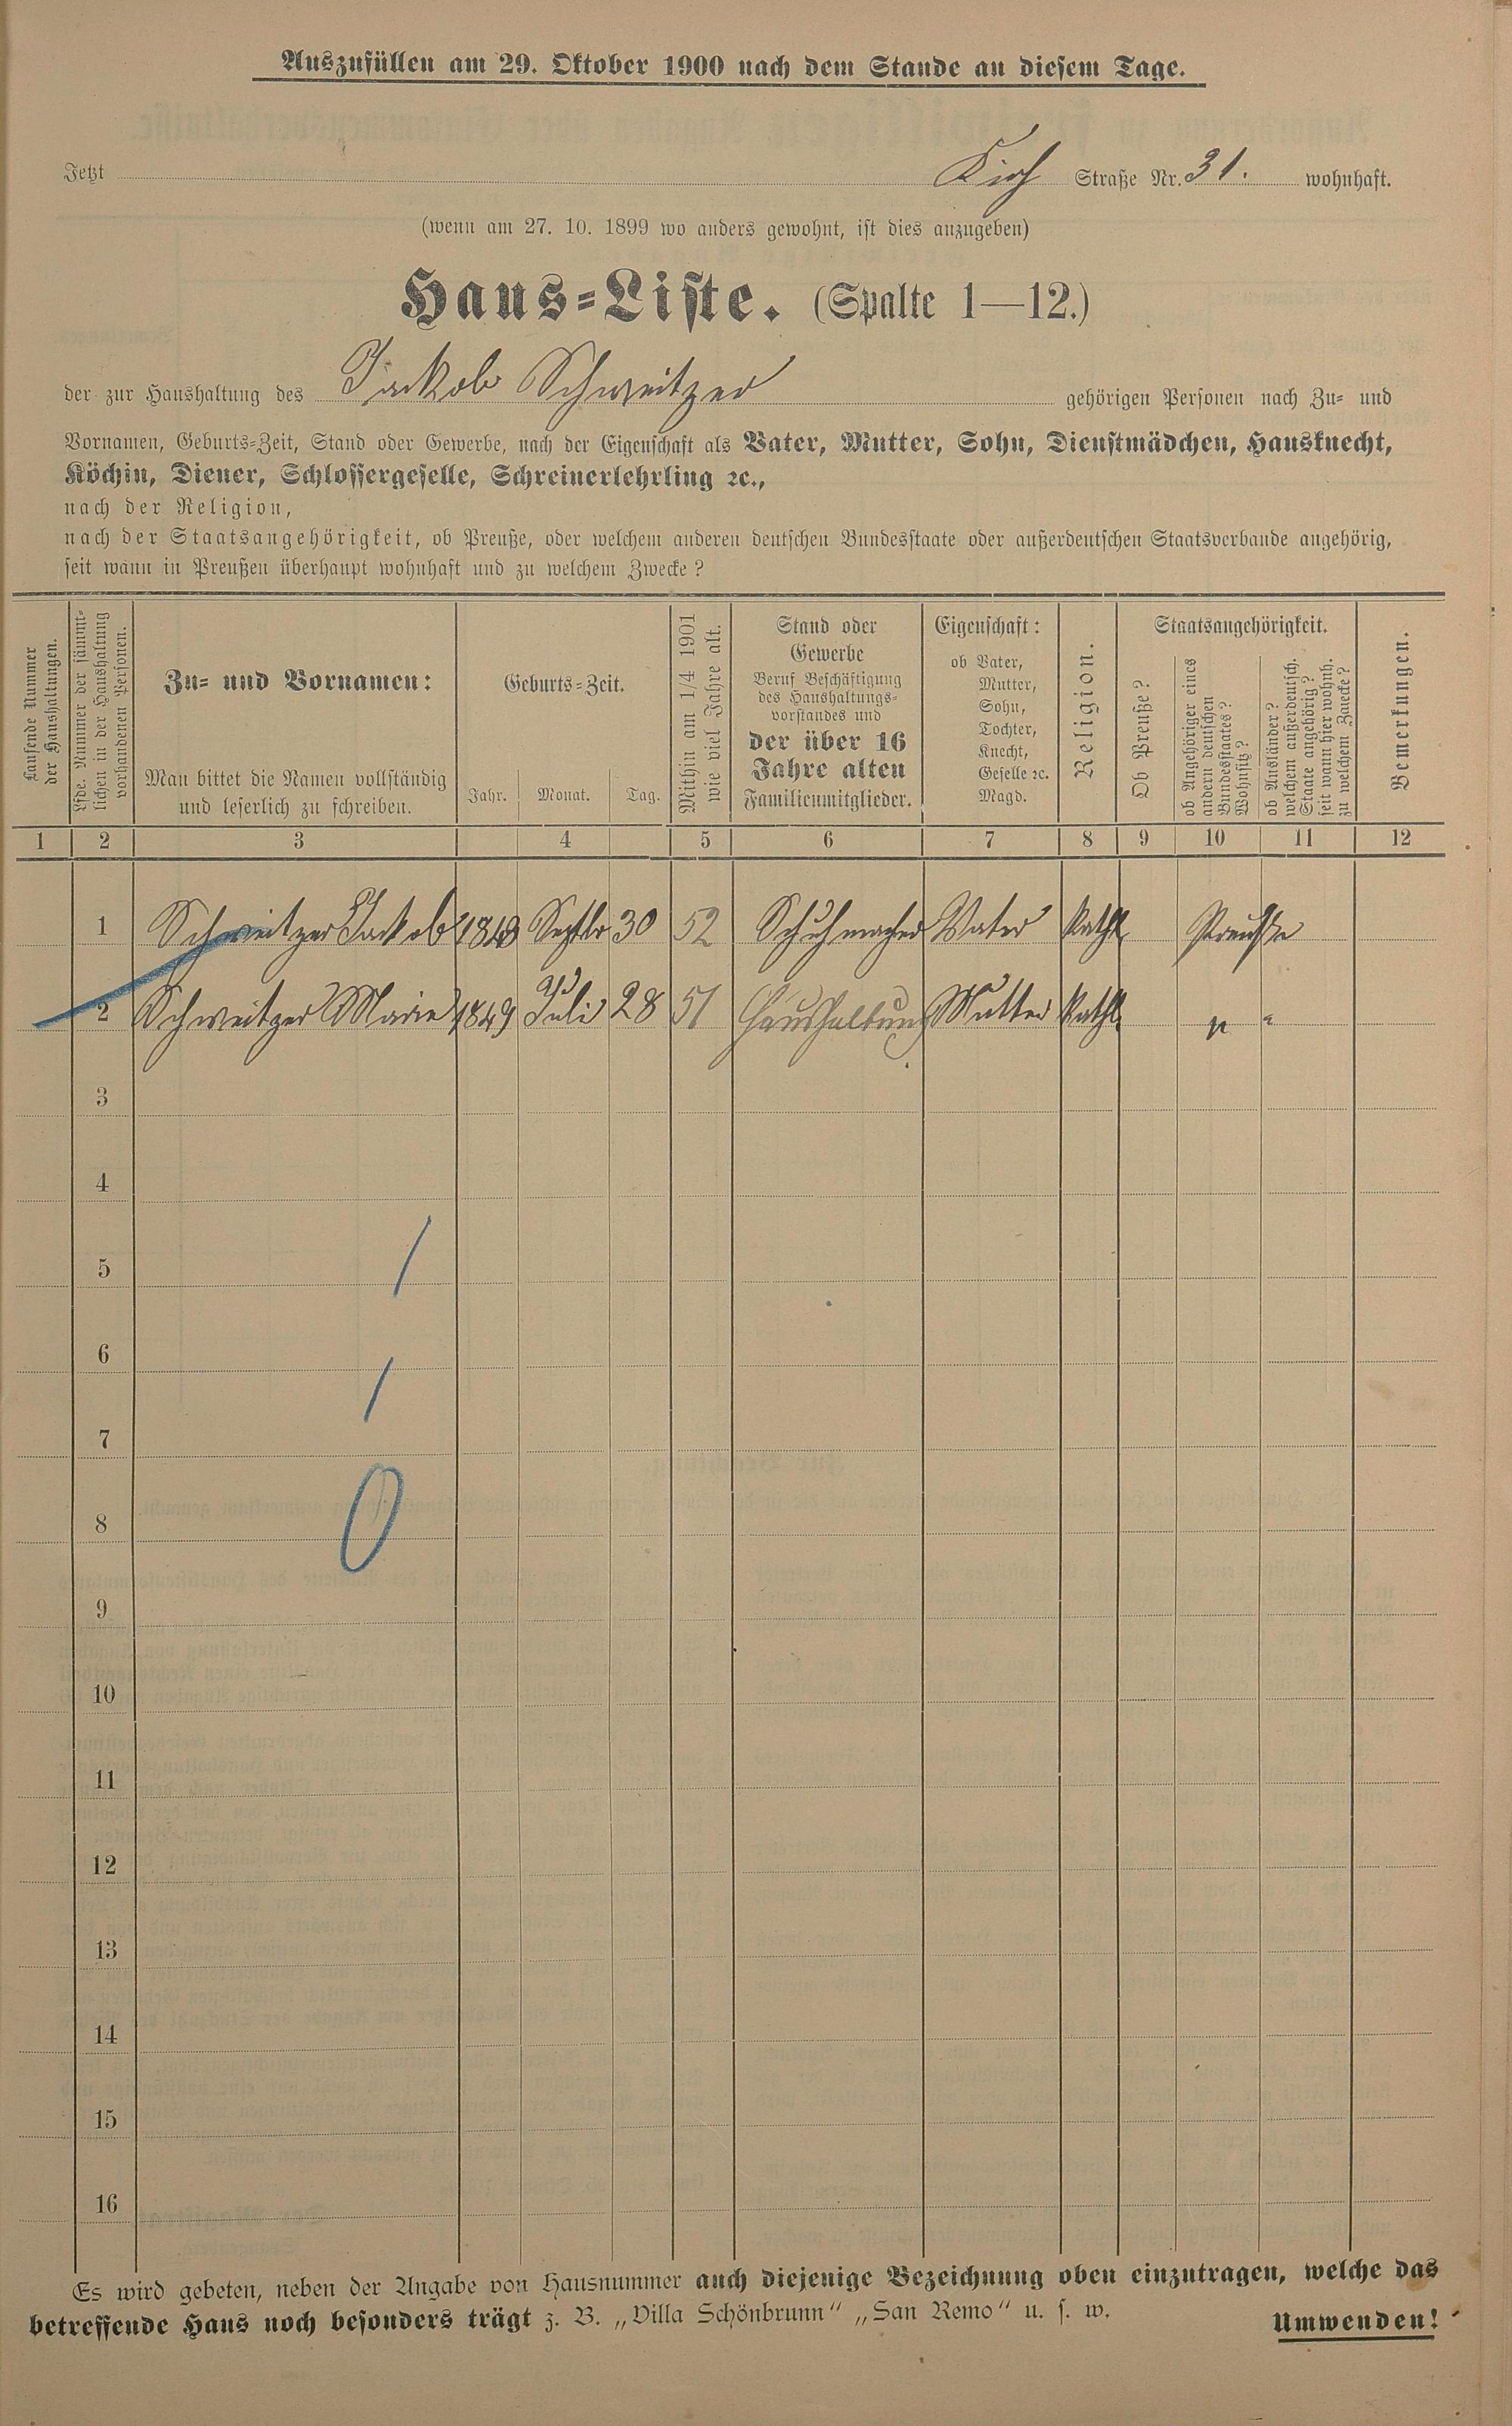 Auszufüllen am 29. Oktober 1900 nach dem Stande an diesem Tage.
Jetzt Straße Nr. 31. wohnhaft.
(wenn am 27. 10. 1899 wo anders gewohnt, ist dies anzugeben)
Haus-Liste. (Spalte 1—12.)
der zur Haushaltung des Jackob Schweitzer gehörigen Personen nach Zu- und
Vornamen, Geburts-Zeit, Stand oder Gewerbe, nach der Eigenschaft als Vater, Mutter, Sohn, Dienstmädchen, Hausknecht,
Köchin, Diener, Schlossergeselle, Schreinerlehrling ꝛc.,
nach der Religion,
nach der Staatsangehörigkeit, ob Preuße, oder welchem anderen deutschen Bundesstaate oder außerdeutschen Staatsverbande angehörig,
seit wann in Preußen überhaupt wohnhaft und zu welchem Zwecke?
Laufende Nummer
der Haushaltungen.
Lfde. Nummer der sämmt-
lichen in der Haushaltung
vorhandenen Personen.
Zu- und Vornamen:
Man bittet die Namen vollständig
und leserlich zu schreiben.
Geburts-Zeit.
Jahr. Monat. Tag.
Mithin am 1/4 1901
wie viel Jahre alt.
Stand oder
Gewerbe
Beruf Beschäftigung
des Haushaltungs-
vorstandes und
der über 16
Jahre alten
Familienmitglieder.
Eigenschaft:
ob Vater,
Mutter,
Sohn,
Tochter,
Knecht,
Geselle ꝛc.
Magd.
Religion.
Staatsangehörigkeit.
Ob Preuße?
ob Angehöriger eines
andern deutschen
Bundesstaates?
Wohnsitz?
ob Ausländer?
welchem außerdeutsch.
Staate angehörig?
seit wann hier wohnh.
zu welchem Zwecke?
Bemerkungen.
1 2 3 4 5 6 7 8 9 10 11 12
1 Schweitzer Jackob 1848 Septbr 30 52 Schuhmacher Vater Kathl. Preuße
2 Schweitzer Marie 1849 Juli 28 51 Haushaltung Mutter Kathl. " "
3
4
5
6
7
8
9
10
11
12
13
14
15
16
Es wird gebeten, neben der Angabe von Hausnummer auch diejenige Bezeichnung oben einzutragen, welche das
betreffende Haus noch besonders trägt z. B. „Villa Schönbrunn“ „San Remo“ u. s. w.
Umwenden!